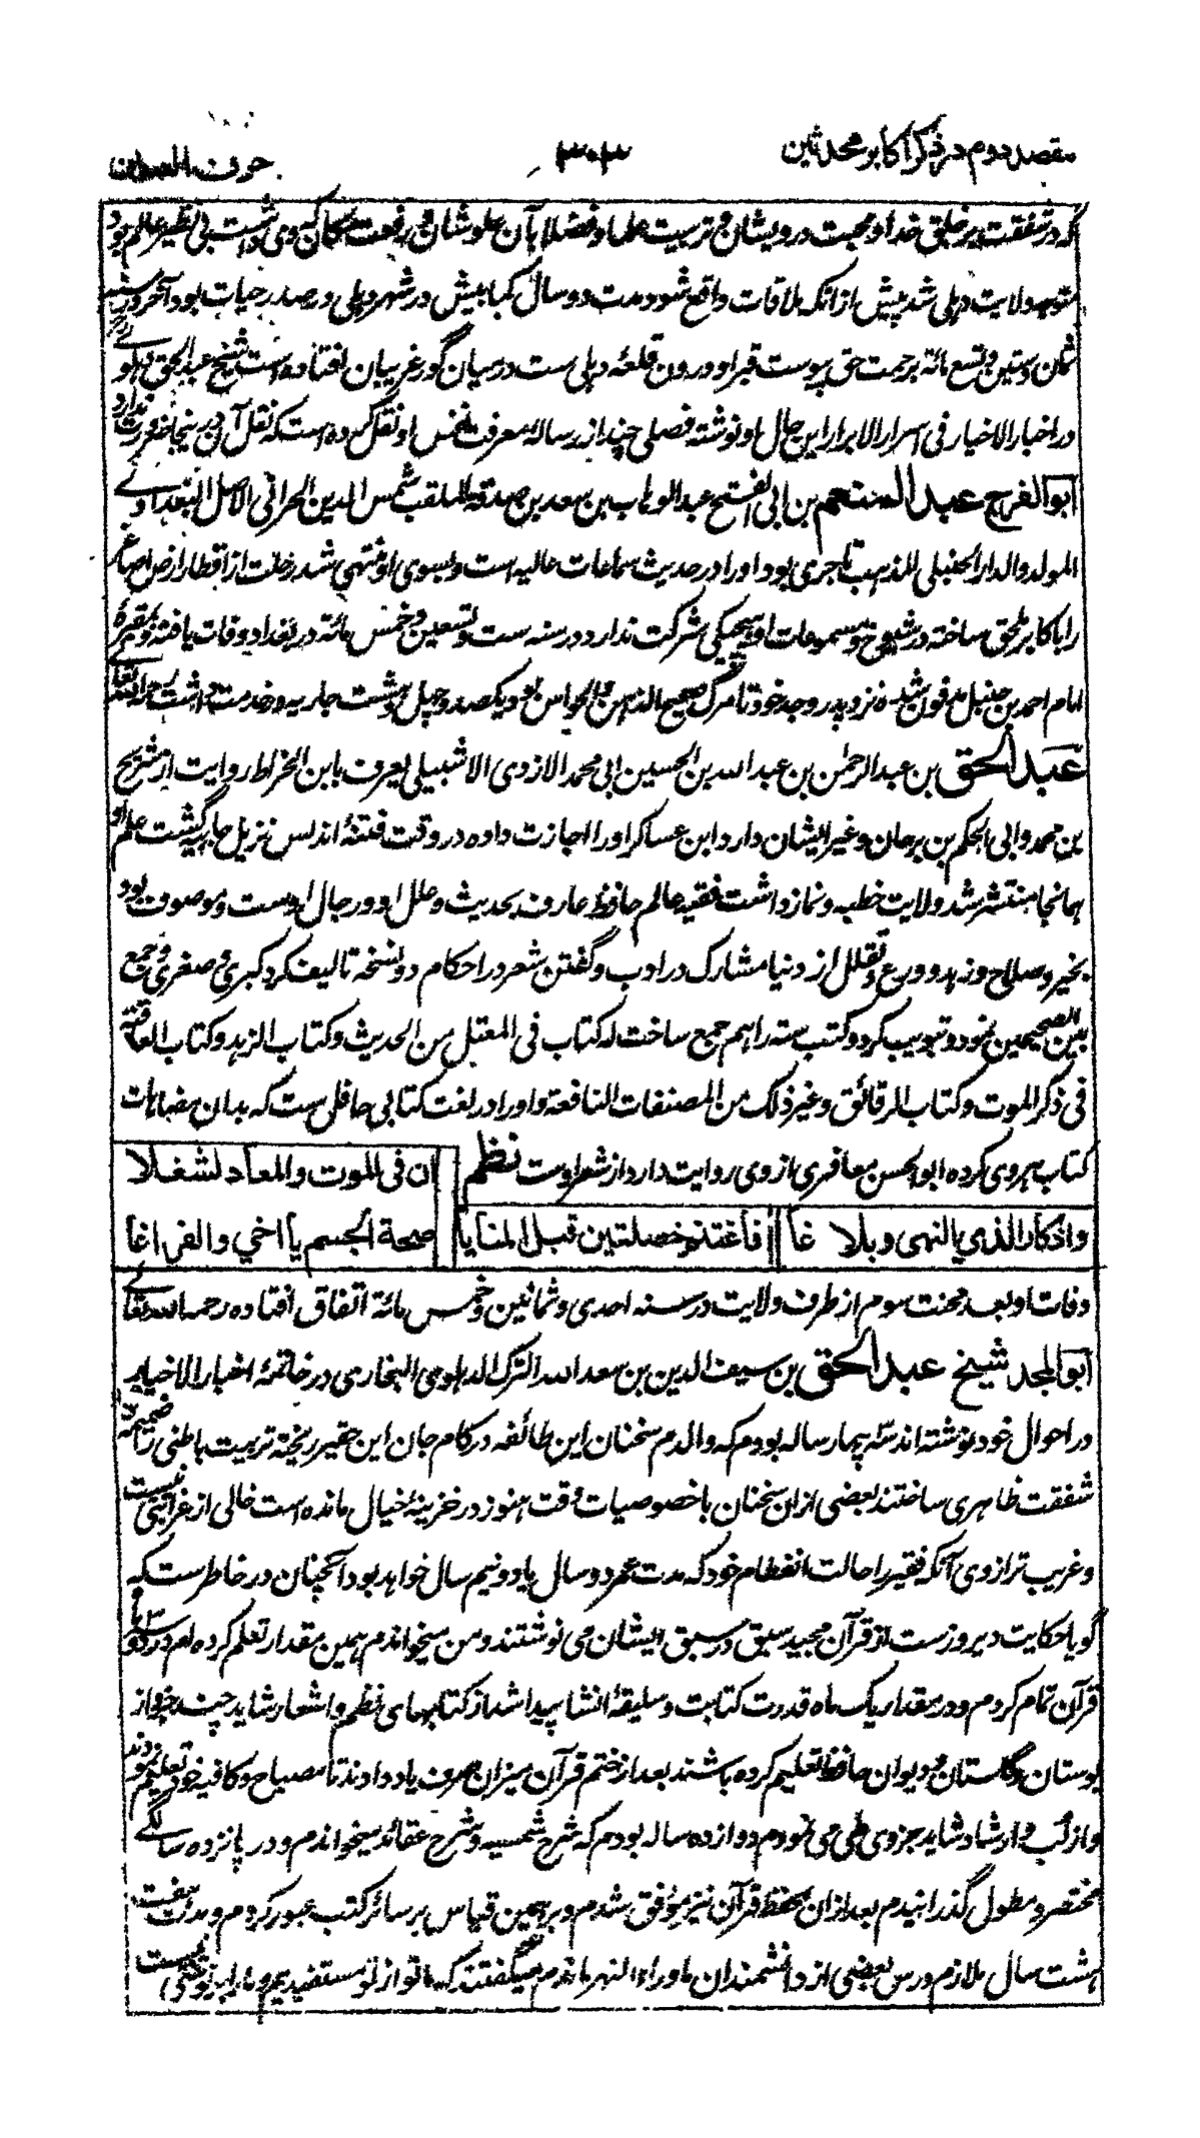 مقصد دوم در ذکر اکابر محدثین
۳۰۳
حرف العین
که در شفقت بر خلق خدا و محبت درویشان و تربیت علما و فضلا بآن علو شان و رفعت مکان که وی داشت بی نظیر عالم بود
متوجه ولایت دهلی شد پیش از انکه ملاقات واقع شود مدت دو سال کما بیش در شهر دهلی در صدر حیات بود آخر در سنه
ثمان و ستین و تسع مائة برحمت حق پیوست قبر او درون قلعهٔ دهلی ست در میان گور غریبان افتاده است شیخ عبد الحق دهلوی
در اخبار الاخیار فی اسرار الابرار این حال او نوشته فصلی چند از رساله معرفت نفس او نقل کرده است که نقل آن درینجا ضرورت ندارد
ابو الفرج عبد المنعم بن ابی الفتح عبد الوهاب بن سعد بن صدقه الملقب شمس الدین الحرانی الاصل البغدادی
المولد والدار الحنبلی المذهب تاجری بود او را در حدیث سماعات عالیه است و بسوی او منتهی شد رحلت از اقطار ارض اصاغر
را باکابر ملحق ساخته در شیوخ و مسموعات او هیچکی شرکت ندارد در سنه ست و تسعین و خمس مائة در بغداد وفات یافته و بمقبرهٔ
امام احمد بن حنبل مدفون شده نزد پدر و جد خود تا مرگ صحیح الذهن والحواس بود یکصد و چهل و هشت جاریه و خدمت داشت رحمه الله تعالی
عبد الحق بن عبد الرحمن بن عبد الله بن الحسین ابی محمد الازدی الاشبیلی یعرف بابن الخراط روایت از شریح
بن محمد و ابی الحکم بن برجان و غیر ایشان دارد ابن عساکر او را اجازت داده در وقت فتنهٔ اندلس نزیل بجایه گشت علم او
همانجا منتشر شد ولایت خطبه و نماز داشت فقیه عالم حافظ عارف بحدیث و علل او و رجال اوست و موصوف بود
بخیر و صلاح و زهد و ورع و تقلل از دنیا مشارک در ادب و گفتن شعر در احکام دو نسخه تالیف کرد کبری و صغری و جمع
بین الصحیحین نمود و تبویب کرد و کتب سته را هم جمع ساخت له کتاب فی المعتل من الحدیث و کتاب الزهد و کتاب العاقبة
فی ذکر الموت و کتاب الرقائق و غیر ذلک من المصنفات النافعة و او را در لغت کتابی حافلی ست که بدان مضاهات
کتاب هروی کرده ابو الحسن معافری از وی روایت دارد از شعر اوست نظم
ان فی الموت والمعاد لشغلا
وادکارا لذي النهى وبلاغا
فاغتنم خصلتین قبل المنایا
صحة الجسم یا اخي والفراغا
وفات او بعد محنت سوم از طرف ولایت در سنه احدی و ثمانین و خمس مائة اتفاق افتاده رحمه الله تعالی
ابو المجد شیخ عبد الحق بن سیف الدین بن سعد الله الترک الدهلوی البخاری در خاتمهٔ اخبار الاخیار
در احوال خود نوشته اند سه چهار ساله بودم که والدم سخنان این طائفه در کام جان این حقیر ریخته تربیت باطنی را ضمیمهٔ
شفقت ظاهری ساختند بعضی ازان سخنان با خصوصیات وقت هنوز در خزینهٔ خیال مانده است خالی از غرابتی نیست
و غریب تر از وی آنکه فقیر را حالت انفطام خود که مدت عمر دو سال یا دو نیم سال خواهد بود آنچنان در خاطر ست که
گویا حکایت دیروز ست از قرآن مجید سبق در سبق ایشان می نوشتند و من میخواندم همین مقدار تعلم کرده ام در دو ۳ ماه
قرآن تمام کردم و در مقدار یک ماه قدرت کتابت و سلیقهٔ انشا پیدا شد از کتابهای نظم و اشعار شاید چند جزو از
بوستان و گلستان و دیوان حافظ تعلیم کرده باشند بعد از ختم قرآن میزان صرف یاد دادند تا مصباح و کافیه خود تعلیم نمودند
و از لب و ارشاد شاید جزوی طی می نمودم دوازده ساله بودم که شرح شمسیه و شرح عقائد میخواندم و در پانزده سالگی
مختصر و مطول گذرانیدم بعد ازان بحفظ قرآن نیز موفق شدم و بر همین قیاس بر سائر کتب عبور کردم و مدت هفت
هشت سال ملازم درس بعضی از دانشمندان ماوراء النهر ماندم میگفتند که ما تو از تو مستفیدیم و ما را بر تو منتی نیست